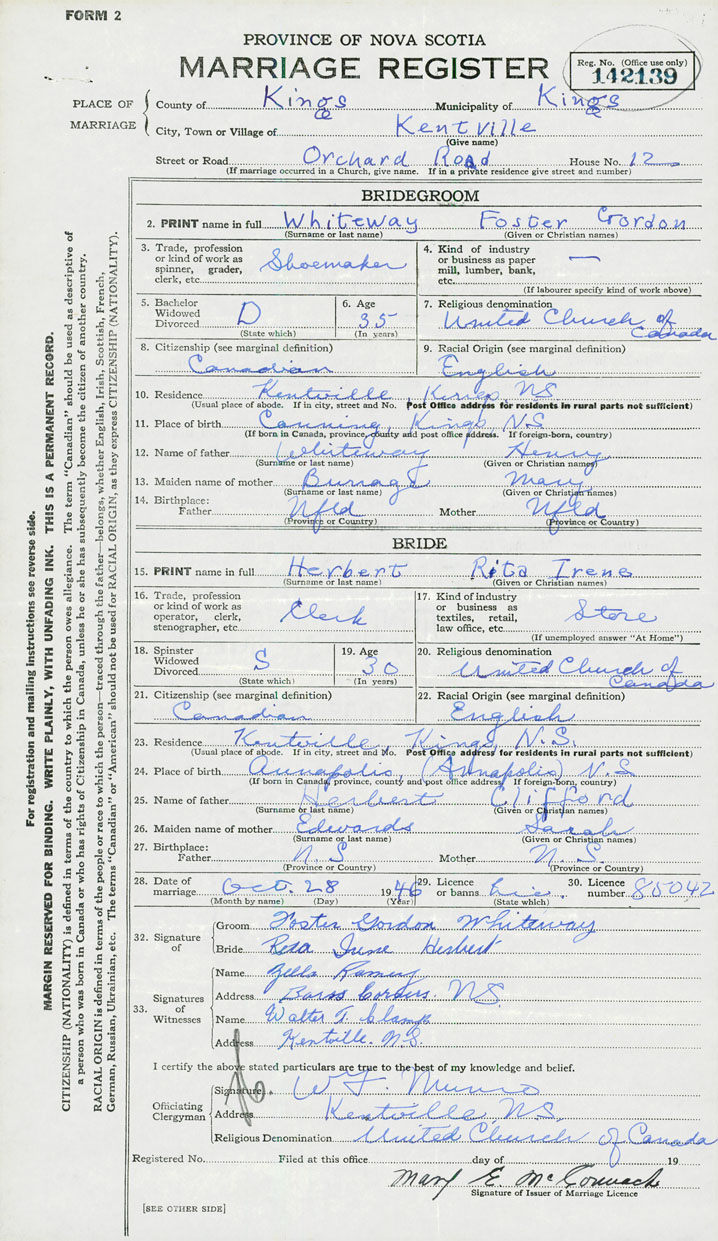 FORM 2
PROVINCE OF NOVA SCOTIA
MARRIAGE REGISTER
Reg. No. (Office use only)
142139
PLACE OF MARRIAGE
County of Kings Municipality of Kings
City, Town or Village of Kentville
(Give name)
Street or Road Orchard Road House No. 12
(If marriage occurred in a Church, give name. If in a private residence give street and number)
BRIDEGROOM
2. PRINT name in full Whiteway Foster Gordon
(Surname or last name) (Given or Christian names)
3. Trade, profession or kind of work as spinner, grader, clerk, etc. Shoemaker
4. Kind of industry or business as paper mill, lumber, bank, etc. —
(If labourer specify kind of work above)
5. Bachelor Widowed Divorced D
(State which)
6. Age 35
(In years)
7. Religious denomination
United Church of Canada
8. Citizenship (see marginal definition)
Canadian
9. Racial Origin (see marginal definition)
English
10. Residence Kentville, Kings NS
(Usual place of abode. If in city, street and No. Post Office address for residents in rural parts not sufficient)
11. Place of birth Canning, Kings, N.S
(If born in Canada, province, county and post office address. If foreign-born, country)
12. Name of father Whiteway Henry
(Surname or last name) (Given or Christian names)
13. Maiden name of mother Burrage Mary
(Surname or last name) (Given or Christian names)
14. Birthplace:
Father Nfld Mother Nfld
(Province or Country) (Province or Country)
BRIDE
15. PRINT name in full Herbert Rita Irene
(Surname or last name) (Given or Christian names)
16. Trade, profession or kind of work as operator, clerk, stenographer, etc. Clerk
17. Kind of industry or business as textiles, retail, law office, etc. Store
(If unemployed answer "At Home")
18. Spinster Widowed Divorced S
(State which)
19. Age 30
(In years)
20. Religious denomination
United Church of Canada
21. Citizenship (see marginal definition)
Canadian
22. Racial Origin (see marginal definition)
English
23. Residence Kentville, Kings, N.S.
(Usual place of abode. If in city, street and No. Post Office address for residents in rural parts not sufficient)
24. Place of birth Annapolis, (Annapolis) N.S
(If born in Canada, province, county and post office address. If foreign-born, country)
25. Name of father Herbert Clifford
(Surname or last name) (Given or Christian names)
26. Maiden name of mother Edwards Sarah
(Surname or last name) (Given or Christian names)
27. Birthplace:
Father N.S Mother N.S.
(Province or Country) (Province or Country)
28. Date of marriage Oct. 28 1946
(Month by name) (Day) (Year)
29. Licence or banns Lic.
(State which)
30. Licence number 85042
32. Signature of
Groom Foster Gordon Whiteway
Bride Rita Irene Herbert
33. Signatures of Witnesses
Name
Address Barss Corners N.S.
Name Walter T.
Address Kentville N.S.
I certify the above stated particulars are true to the best of my knowledge and belief.
Officiating Clergyman
Signature W Munro
Address Kentville N.S.
Religious Denomination United Church of Canada
Registered No. Filed at this office day of 19
Mary E. McCormack
Signature of Issuer of Marriage Licence
[SEE OTHER SIDE]
For registration and mailing instructions see reverse side.
MARGIN RESERVED FOR BINDING. WRITE PLAINLY, WITH UNFADING INK. THIS IS A PERMANENT RECORD.
CITIZENSHIP (NATIONALITY) is defined in terms of the country to which the person owes allegiance. The term "Canadian" should be used as descriptive of
a person who was born in Canada or who has rights of Citizenship in Canada, unless he or she has subsequently become the citizen of another country.
RACIAL ORIGIN is defined in terms of the people or race to which the person—traced through the father—belongs, whether English, Irish, Scottish, French,
German, Russian, Ukrainian, etc. The terms "Canadian" or "American" should not be used for RACIAL ORIGIN, as they express CITIZENSHIP (NATIONALITY).